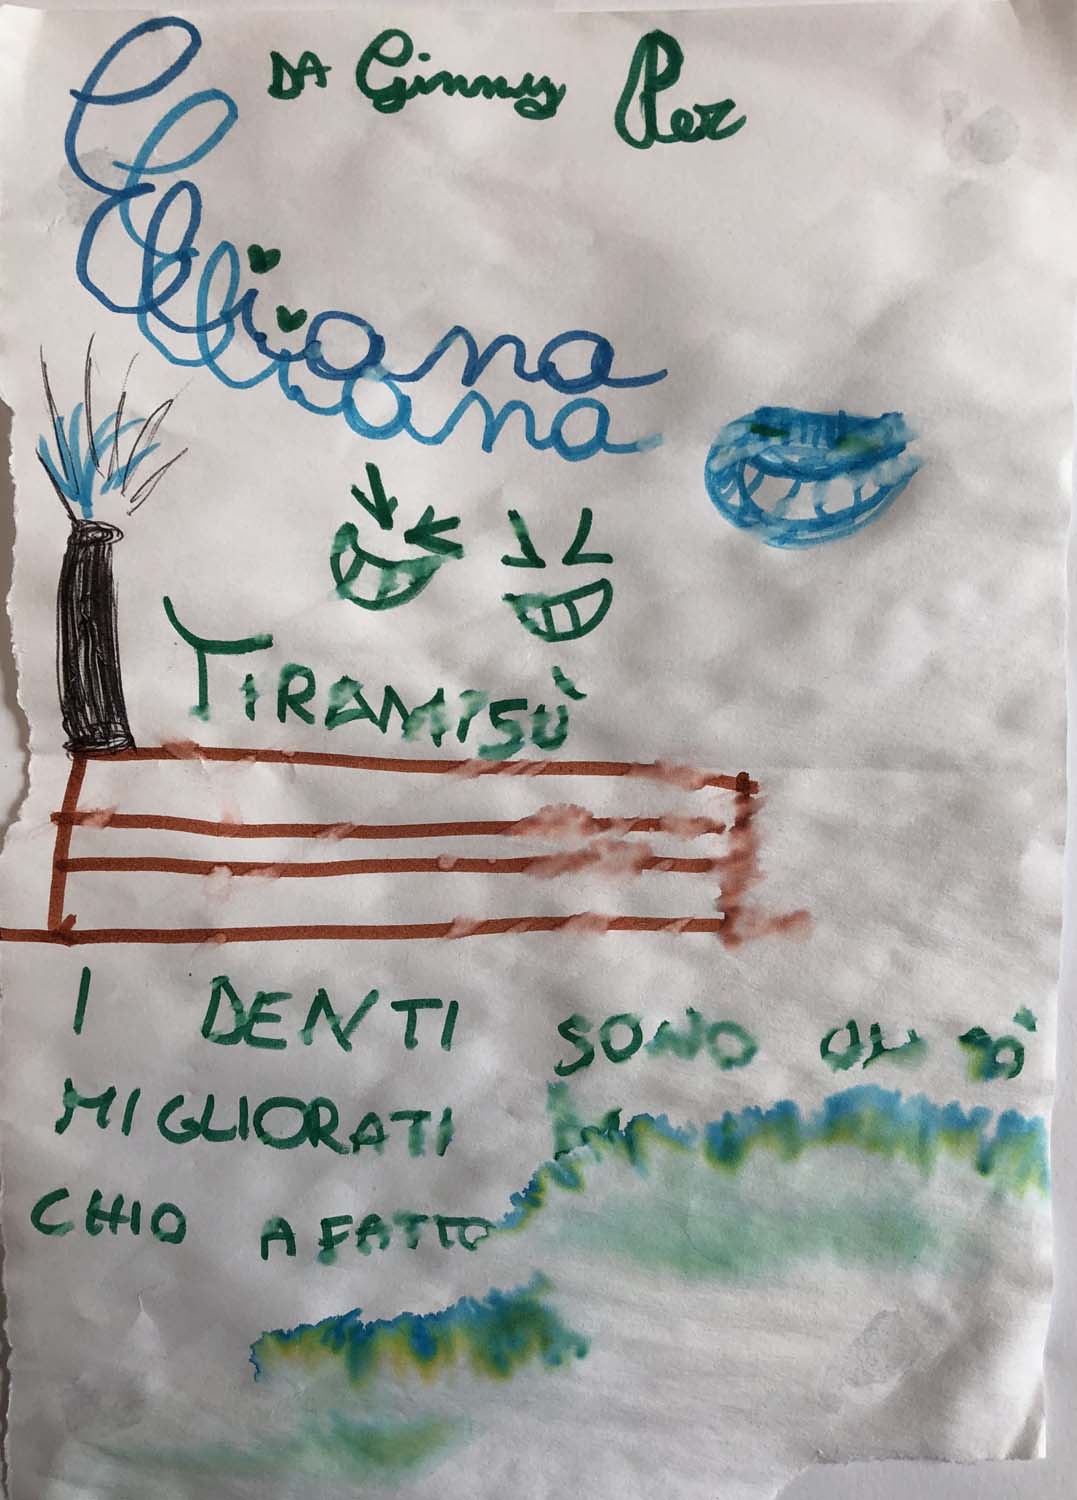 DA Ginny Per
Eliana
Eliana
TIRAMISÙ
I DENTI SONO
MIGLIORATI
CHIO A FATTO